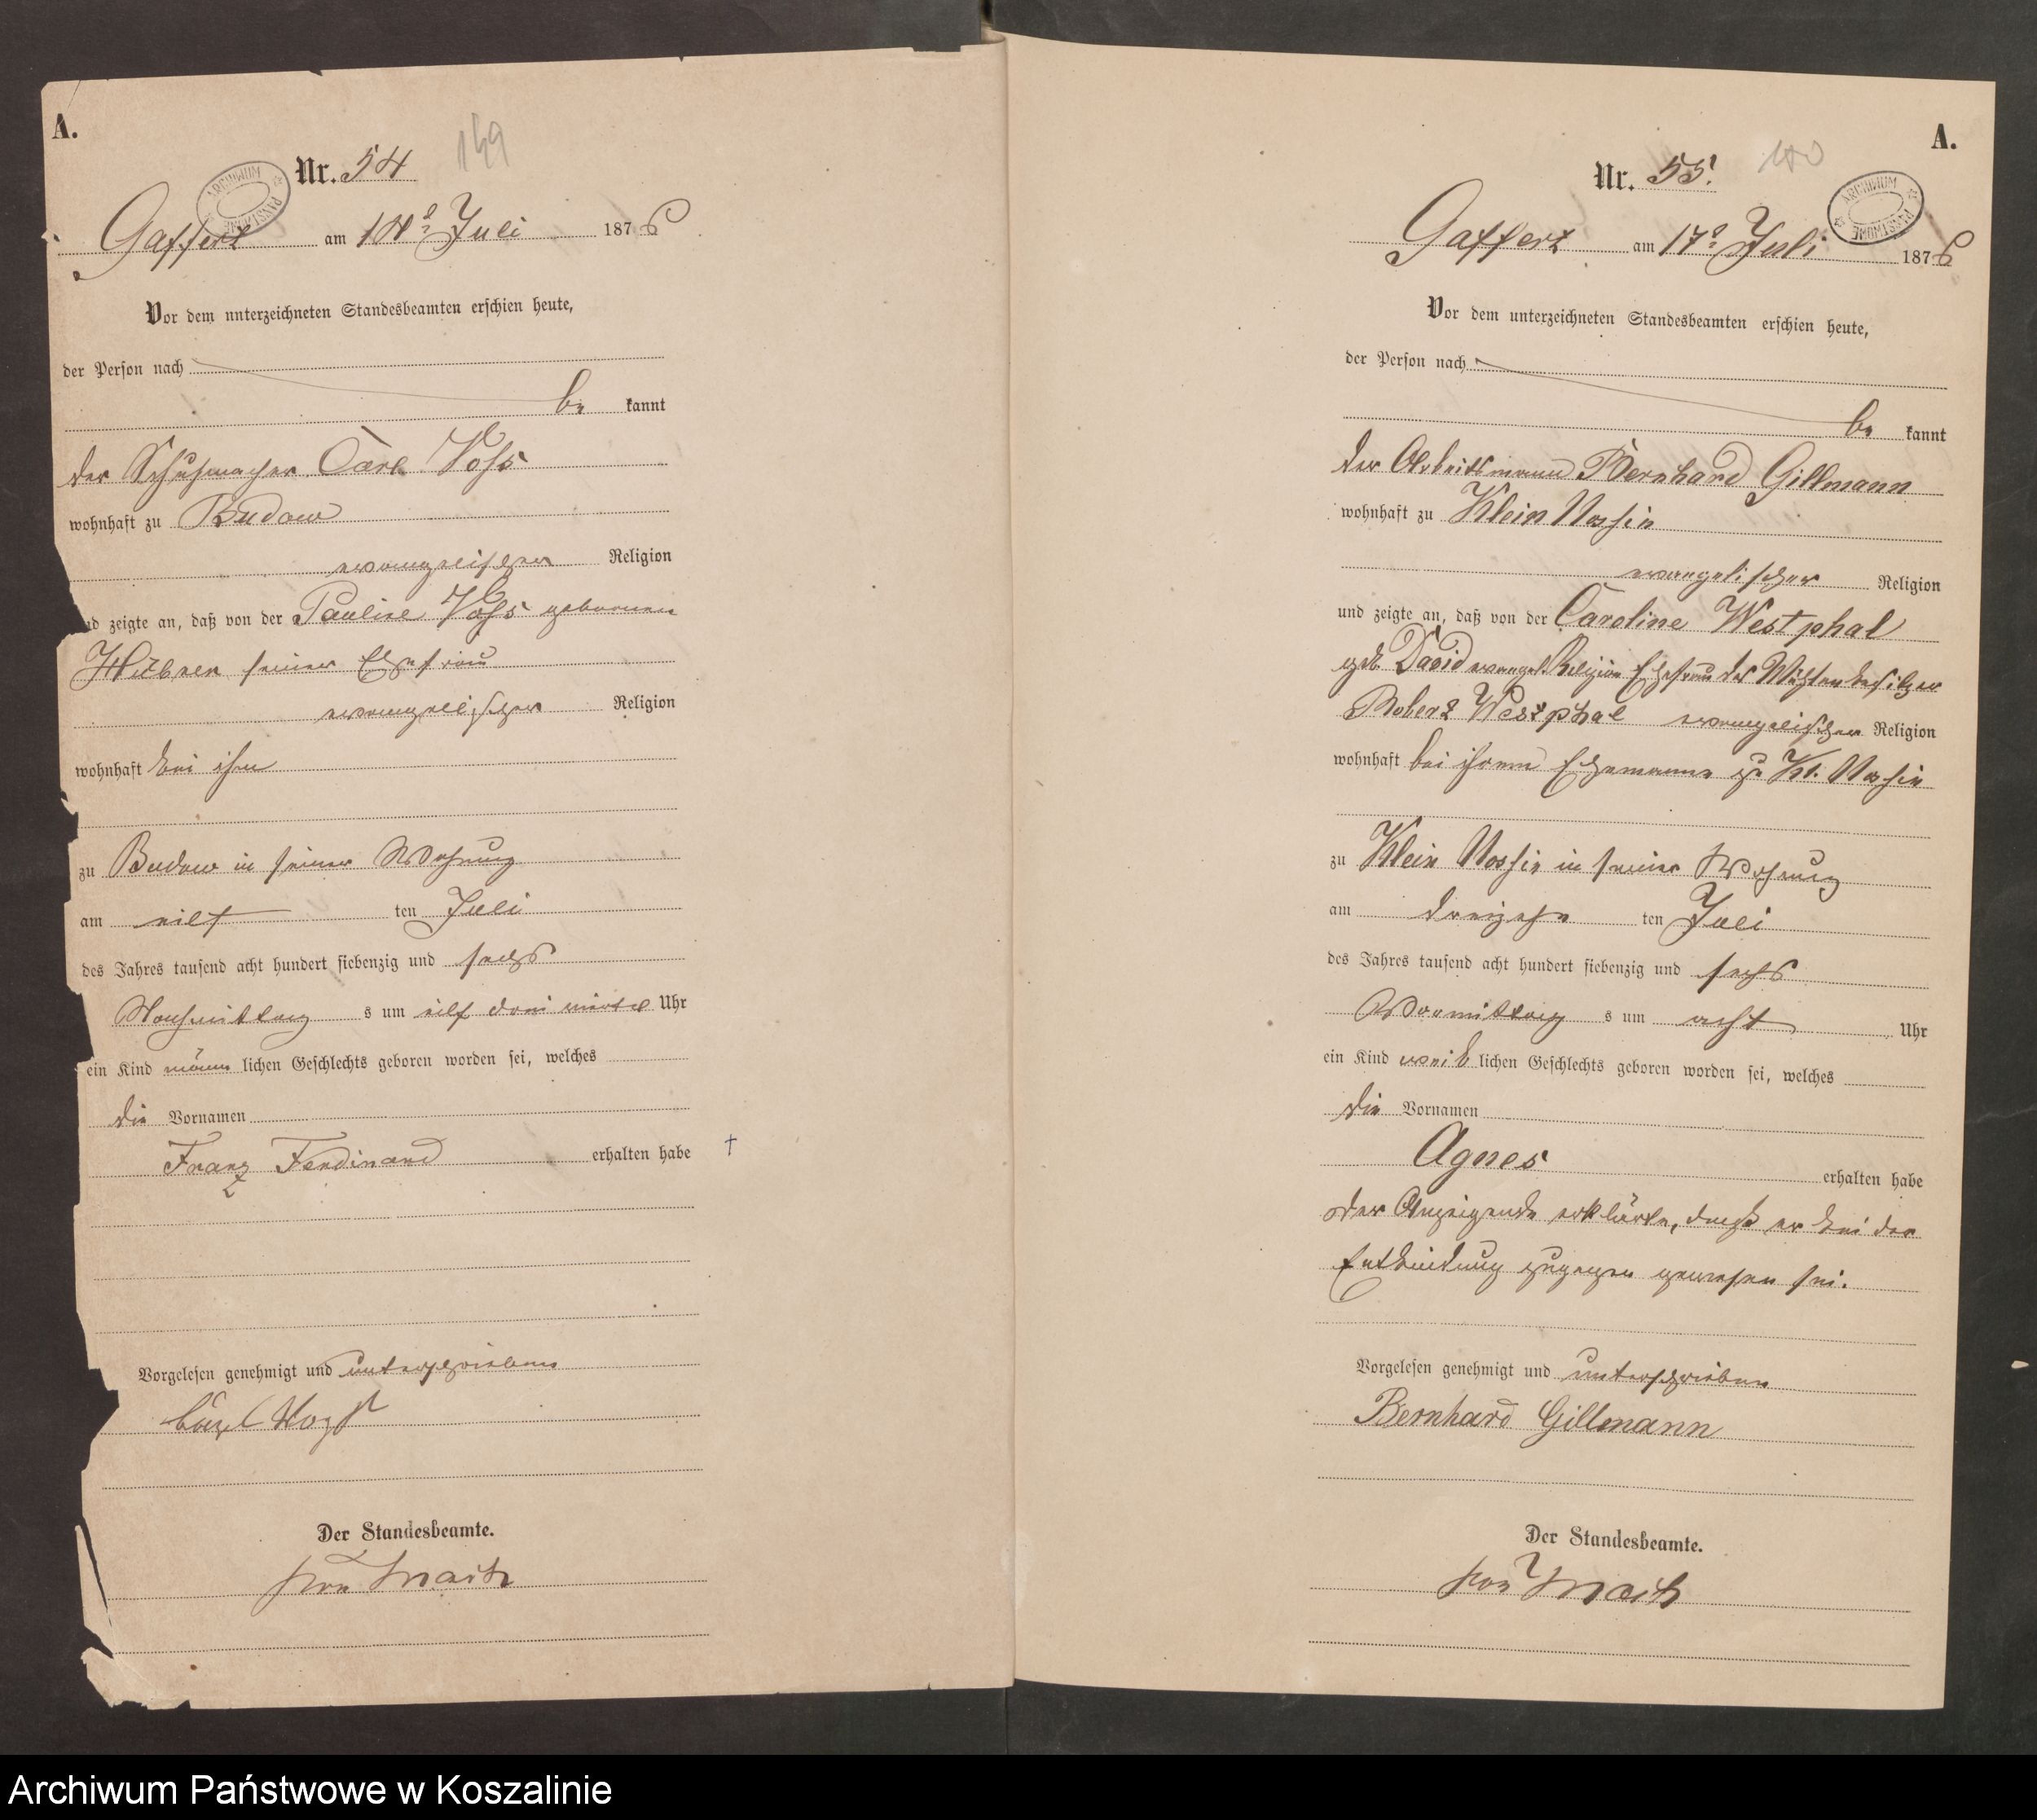 A.
149
Nr. 54
ARCHIWUM PAŃSTWOWE
Gaffert am 14t Juli 1876
Vor dem unterzeichneten Standesbeamten erschien heute,
der Person nach
be kannt
der Schuhmacher Carl Voss
wohnhaft zu Budow
evangelischer Religion
und zeigte an, daß von der Pauline Voss geborenen
seiner Ehefrau
evangelischer Religion
wohnhaft bei ihm
zu Budow in seiner Wohnung
am eilf ten Juli
des Jahres tausend acht hundert siebenzig und sechs
Nachmittag s um eilf drei viertel Uhr
ein Kind männ lichen Geschlechts geboren worden sei, welches
die Vornamen
Franz Ferdinand erhalten habe †
Vorgelesen genehmigt und unterschrieben
Der Standesbeamte.
A.
Nr. 55.
ARCHIWUM PAŃSTWOWE
Gaffert am 17t Juli 1876
Vor dem unterzeichneten Standesbeamten erschien heute,
der Person nach
be kannt
der Arbeitsmann Bernhard Gillmann
wohnhaft zu Klein Nossin
evangelischer Religion
und zeigte an, daß von der Caroline Westphal
geb David evangel. Religion Ehefrau des besitzer
Robert Westphal evangelischer Religion
wohnhaft bei ihrem Ehemanne zu Kl. Nossin
zu Klein Nossin in seiner Wohnung
am dreizehn ten Juli
des Jahres tausend acht hundert siebenzig und sechs
Vormittag s um acht Uhr
ein Kind weib lichen Geschlechts geboren worden sei, welches
die Vornamen
Agnes erhalten habe
Der Anzeigende erklärte, daß er bei der
Entbindung zugegen gewesen sei.
Vorgelesen genehmigt und unterschrieben
Bernhard Gillmann
Der Standesbeamte.
Archiwum Państwowe w Koszalinie